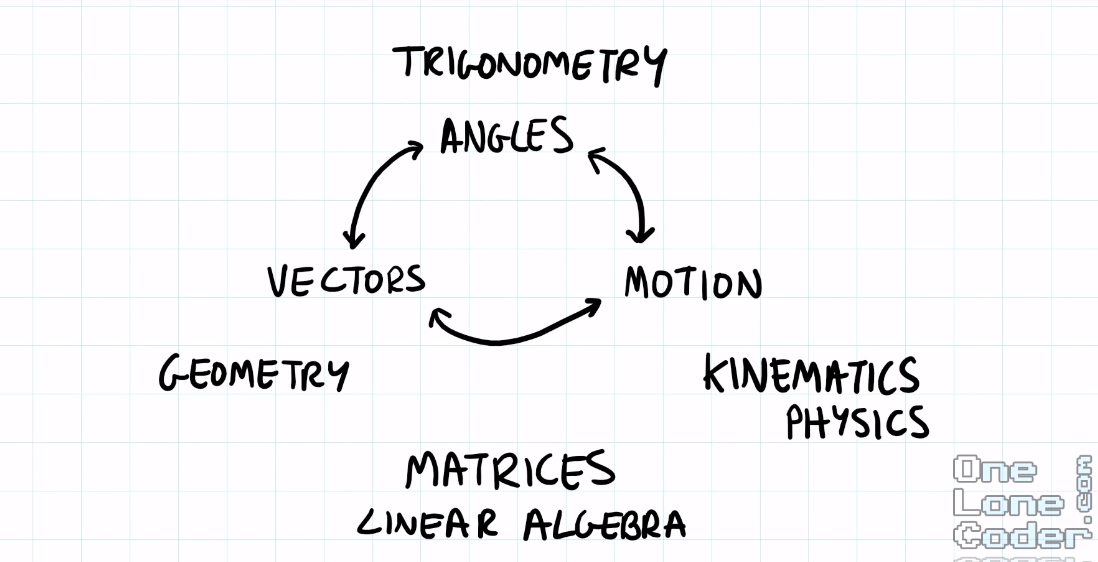 TRIGONOMETRY
ANGLES
VECTORS
MOTION
GEOMETRY
KINEMATICS
PHYSICS
MATRICES
LINEAR ALGEBRA
One
Lone
Coder
.com